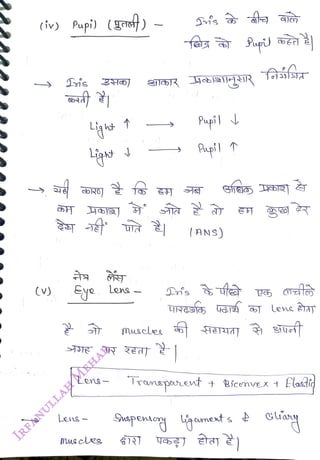 (iv) Pupil (पुतली) - Iris के बीच वाले
छिद्र को Pupil कहते हैं।
→ Iris उसका आकार प्रकाशानुसार नियंत्रित
करती है।
Light ↑ → Pupil ↓
Light ↓ → Pupil ↑
→ यही कारण है कि हम जब अधिक प्रकाश से
कम प्रकाश में जाते है तो हम कुछ देर
देख नहीं पाते है। (ANS)
नेत्र लेंस
(v) Eye Lens - Iris के पीछे एक लचीले
पारदर्शक पदार्थ का Lens होता
है जो muscles की सहायता से अपनी
जगह पर रहता है।
Lens - Transparent + Biconvex + Elastic
→ Lens - Suspensory ligaments & Ciliary
muscles द्वारा पकड़ा होता है।
IRFANULLAH MEHAR